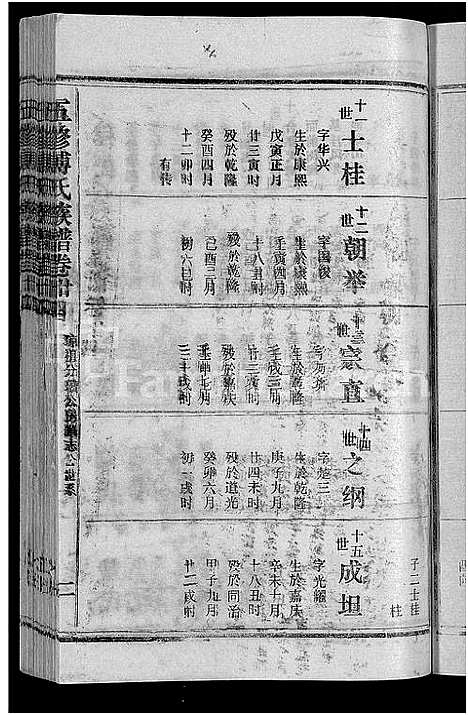 五修傅氏族谱卷廿四
子二士桂
桂
十一世 士桂
字华兴
生於康熙
戊寅正月
廿三寅时
殁於乾隆
癸酉四月
十二卯时
有传
十二世 朝举
字国俊
生於康熙
壬寅四月
十八丑时
殁於乾隆
己酉三月
初六巳时
十三世 宗直
生於乾隆
壬戌三月
十四世 之纲
字楚三
生於乾隆
庚子九月
廿四未时
殁於道光
癸卯六月
初一戌时
十五世 成坦
字光纲
生於嘉庆
辛未十月
十八丑时
殁於同治
甲子九月
廿二戌时